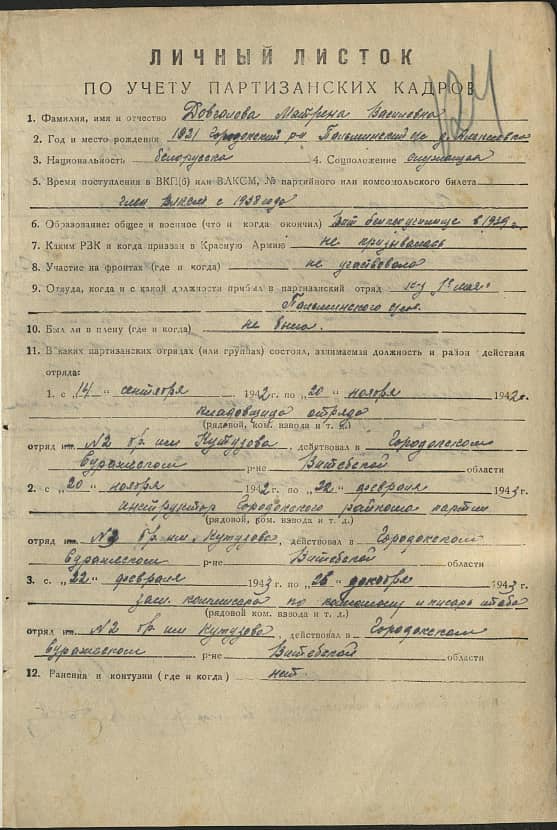 ЛИЧНЫЙ ЛИСТОК
ПО УЧЕТУ ПАРТИЗАНСКИХ КАДРОВ
1. Фамилия, имя и отчество Довгалева Матрена Васильевна
2. Год и место рождения 1921 Городокский р-н Пальминский с/с д.
3. Национальность белорусска 4. Соцположение служащая
5. Время поступления в ВКП(б) или ВЛКСМ, № партийного или комсомольского билета
член ВЛКСМ с 1938 года
6. Образование: общее и военное (что и когда окончил) в 1939 г.
7. Каким РЗК и когда призван в Красную Армию не призывалась
8. Участие на фронтах (где и когда) не участвовала
9. Откуда, когда и с какой должности прибыл в партизанский отряд из
Пальминского
10. Был ли в плену (где и когда) не была.
11. В каких партизанских отрядах (или группах) состоял, занимаемая должность и район действия
отряда:
1. с „14" сентября 1942 г. по „20" ноября 1942 г.
кладовщица отряда
(рядовой, ком. взвода и т. д.)
отряд им. №2 бр. им Кутузова, действовал в Городокском
Суражском р-не Витебской области
2. с „20" ноября 1942 г. по „22" февраля 1943 г.
инструктор Городокского райкома партии
(рядовой, ком. взвода и т. д.)
отряд им. бр. им. Кутузова, действовал в Городокском
Суражском р-не Витебской области
3. с „22" февраля 1943 г. по „26" октября 1943 г.
зам. комиссара по комсомолу и писарь штаба
(рядовой, ком. взвода и т. д.)
отряд им. №2 бр. им Кутузова, действовал в Городокском
Суражском р-не Витебской области
12. Ранения и контузии (где и когда) нет.